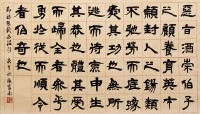 惡旨酒崇伯子
之顧養育英才
穎封人之錫類
不弛勞而底豫
舜其功也無所
逃而待烹申生
其恭也體其受
而歸全者參乎
勇於從而順令
者伯奇也